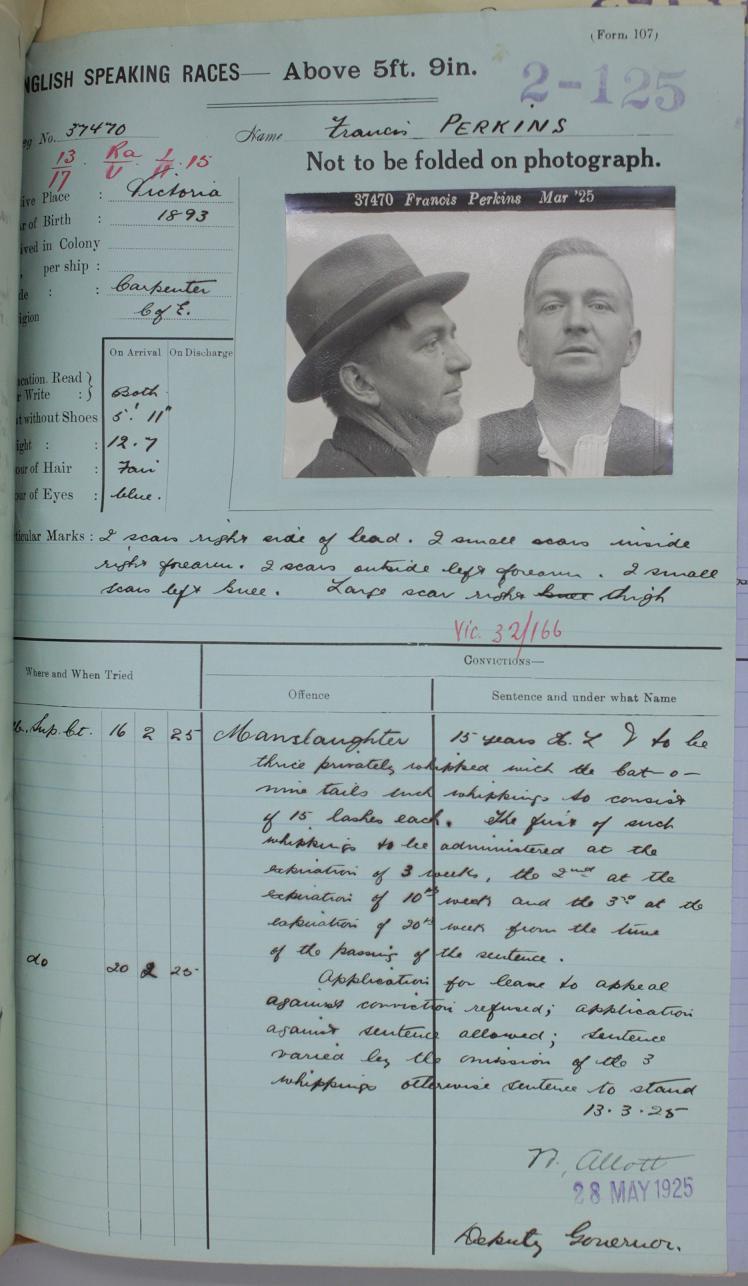 (Form 107)
NGLISH SPEAKING RACES— Above 5ft. 9in.
2-125
eg No. 37470
Name Francis PERKINS
13/17 Ra/U 1/ 15
Not to be folded on photograph.
ive Place : Victoria
r of Birth : 1893
ived in Colony
per ship :
de : : Carpenter
igion C of E.
37470 Francis Perkins Mar '25
On Arrival On Discharge
ucation. Read }
r Write : } Both
t without Shoes 5' 11"
ight : : 12.7
our of Hair : Fair
ur of Eyes : blue.
ticular Marks : 2 scars right side of head. 2 small scars inside
right forearm. 2 scars outside left forearm. 2 small
scars left knee. Large scar right knee thigh
Vic. 32/166
Where and When Tried
CONVICTIONS—
Offence
Sentence and under what Name
Sup. Ct. 16 2 25 Manslaughter 15 years H. L & to be
thrice privately whipped with the Cat-o-
nine tails such whippings to consist
of 15 lashes each. The first of such
whippings to be administered at the
expiration of 3 weeks, the 2nd at the
expiration of 10th week and the 3rd at the
expiration of 20th week from the time
of the passing of the sentence.
do 20 2 25
Application for leave to appeal
against conviction refused; application
against sentence allowed; sentence
varied by the omission of the 3
whippings otherwise sentence to stand
13.3.25
N. Allott
28 MAY 1925
Deputy Governor.